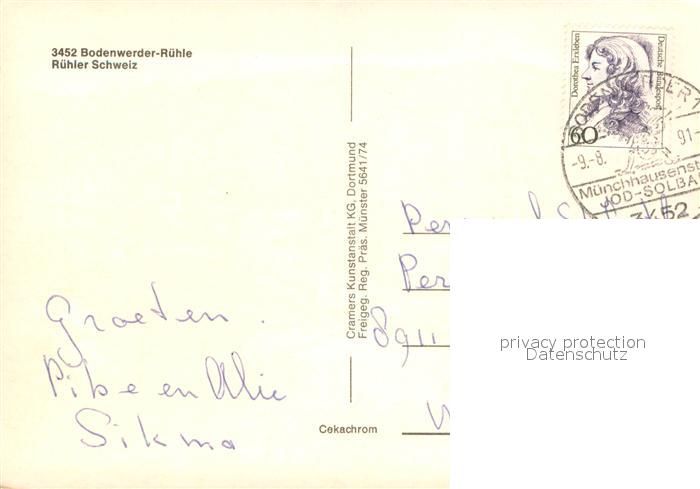 3452 Bodenwerder-Rühle
Rühler Schweiz
Dorothea Erxleben
Deutsche Bundespost
60
-9.-8.
91-
Münchhausenst
JOD-SOLBA
3452
Cramers Kunstanstalt KG, Dortmund
Freigeg. Reg. Präs. Münster 5641/74
Per
8911
Groeten.
Sikma
Cekachrom
privacy protection
Datenschutz